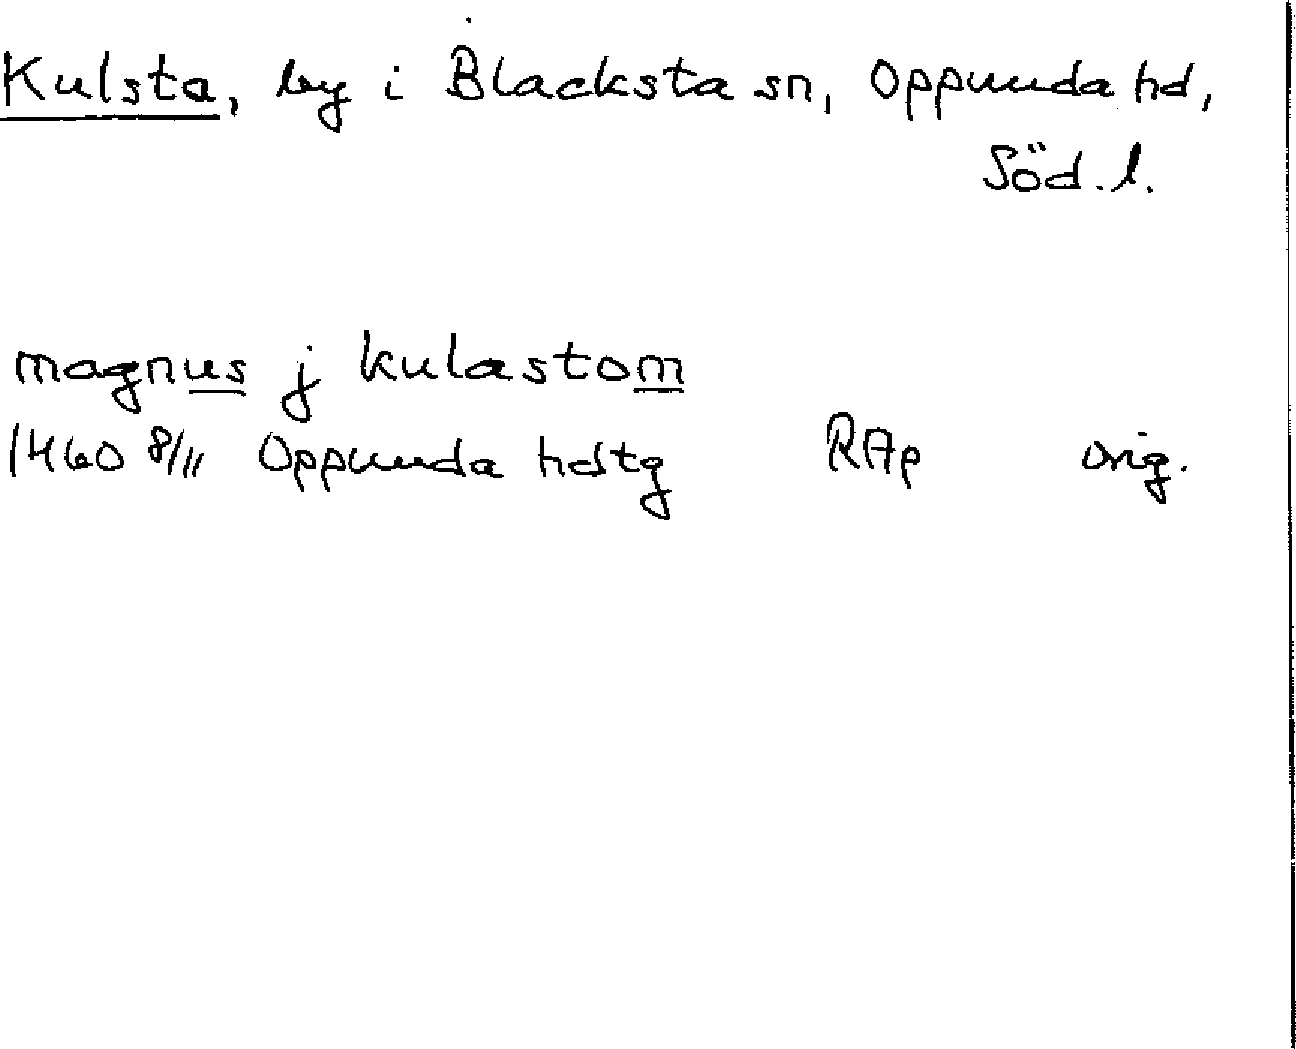 Kulsta, by i Blacksta sn, Oppunda hd,
Söd. l.
magnus j kulastom
1460 8/11 Oppunda hdtg RAp orig.